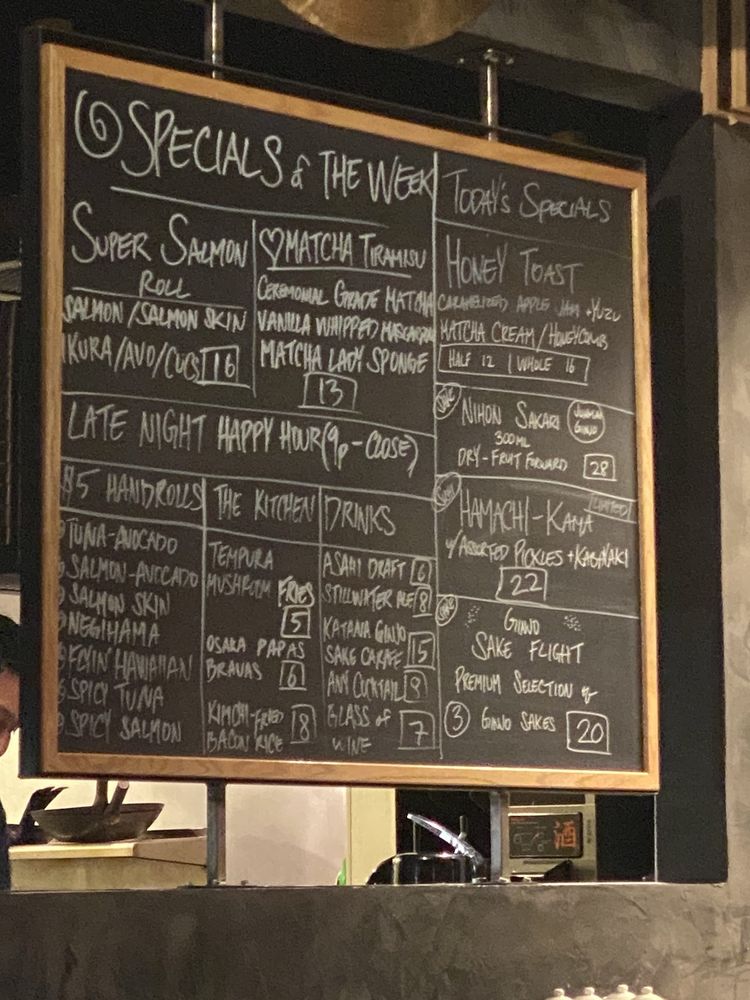 SPECIALS of THE WEEK
SUPER SALMON
ROLL
SALMON/SALMON SKIN
IKURA/AVO/CUCS 16
♡MATCHA TIRAMISU
CEREMONIAL GRADE MATCHA
VANILLA WHIPPED
MATCHA LADY SPONGE
13
LATE NIGHT HAPPY HOUR (9p-CLOSE)
$5 HANDROLLS
TUNA-AVOCADO
SALMON-AVOCADO
SALMON SKIN
NEGIHAMA
FLYIN' HAWAIIAN
SPICY TUNA
SPICY SALMON
THE KITCHEN
TEMPURA
MUSHROOM FRIES
5
OSAKA PAPAS
BRAVAS 6
KIMCHI-FRIED
BACON RICE 8
DRINKS
ASAHI DRAFT 6
STILLWATER ALE 8
KATANA GINJO
SAKE CARAFE 15
ANY COCKTAIL 9
GLASS of
WINE 7
TODAY'S SPECIALS
HONEY TOAST
CARAMELIZED APPLE JAM + YUZU
MATCHA CREAM/HONEYCOMB
HALF 12 | WHOLE 16
NIHON SAKARI
JUNMAI
GINJO
300ML
DRY-FRUIT FORWARD 28
LIMITED!
HAMACHI-KAMA
w/ASSORTED PICKLES + KABAYAKI
22
GINJO
SAKE FLIGHT
PREMIUM SELECTION of
3 GINJO SAKES 20
酒